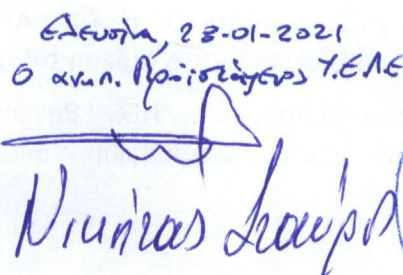 Ελευσίνα, 28-01-2021
Ο αναπ. Προϊστάμενος Υ.Ε.Λ.Ε
Νικήτας Σταύρο